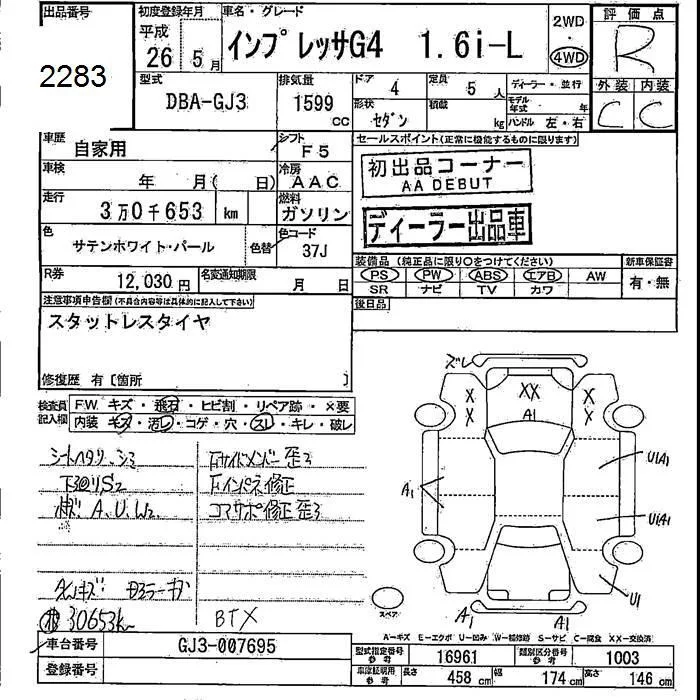 出品番号
2283
初度登録年月
平成
26 5月
車名・グレード
インプレッサG4 1.6i-L
2WD
・
4WD
評価点
R
外装 内装
C C
型式
DBA-GJ3
排気量
1599
CC
ドア
4
定員
5 人
ディーラー・並行
形状
セダン
積載
kg
モデル年式 年
ハンドル 左・右
車歴
自家用
シフト
F5
車検
年 月( 日)
冷房
AAC
走行
3万0千653 km
燃料
ガソリン
色
サテンホワイト・パール
色替
色コード
37J
R券
12,030円
名変通知期限
月 日
セールスポイント(正常に機能するものに限ります)
初出品コーナー
AA DEBUT
ディーラー出品車
装備品 (純正品に限り○をつけてください)
PS PW ABS エアB AW
SR ナビ TV カワ
新車保証書
有・無
後日品
注意事項申告欄(不具合内容等は具体的に記入して下さい)
スタットレスタイヤ
修復歴 有〔箇所 〕
検査員記入欄
F.W. キズ・飛石・ヒビ割・リペア跡・×要
内装 キズ・汚レ・コゲ・穴・スレ・キレ・破レ
シートヘタリ シミ
下回りS2
ボディ A、U、W2
Fサイドメンバー歪み
Fインパネ修正
コアサポ修正歪み
30653k
BTX
ズレ
XX
A1
X
X
X
X
U1(A1)
A1
U1(A1)
U1
スペア
A1
A1
A-キズ E-エクボ U-凹ミ W-補修跡 S-サビ C-腐食 XX-交換済
車台番号
GJ3-007695
登録番号
型式指定番号
参考
16961
類別区分番号
参考
1003
車庫証明用
参考
長さ
458 cm
幅
174 cm
高さ
146 cm